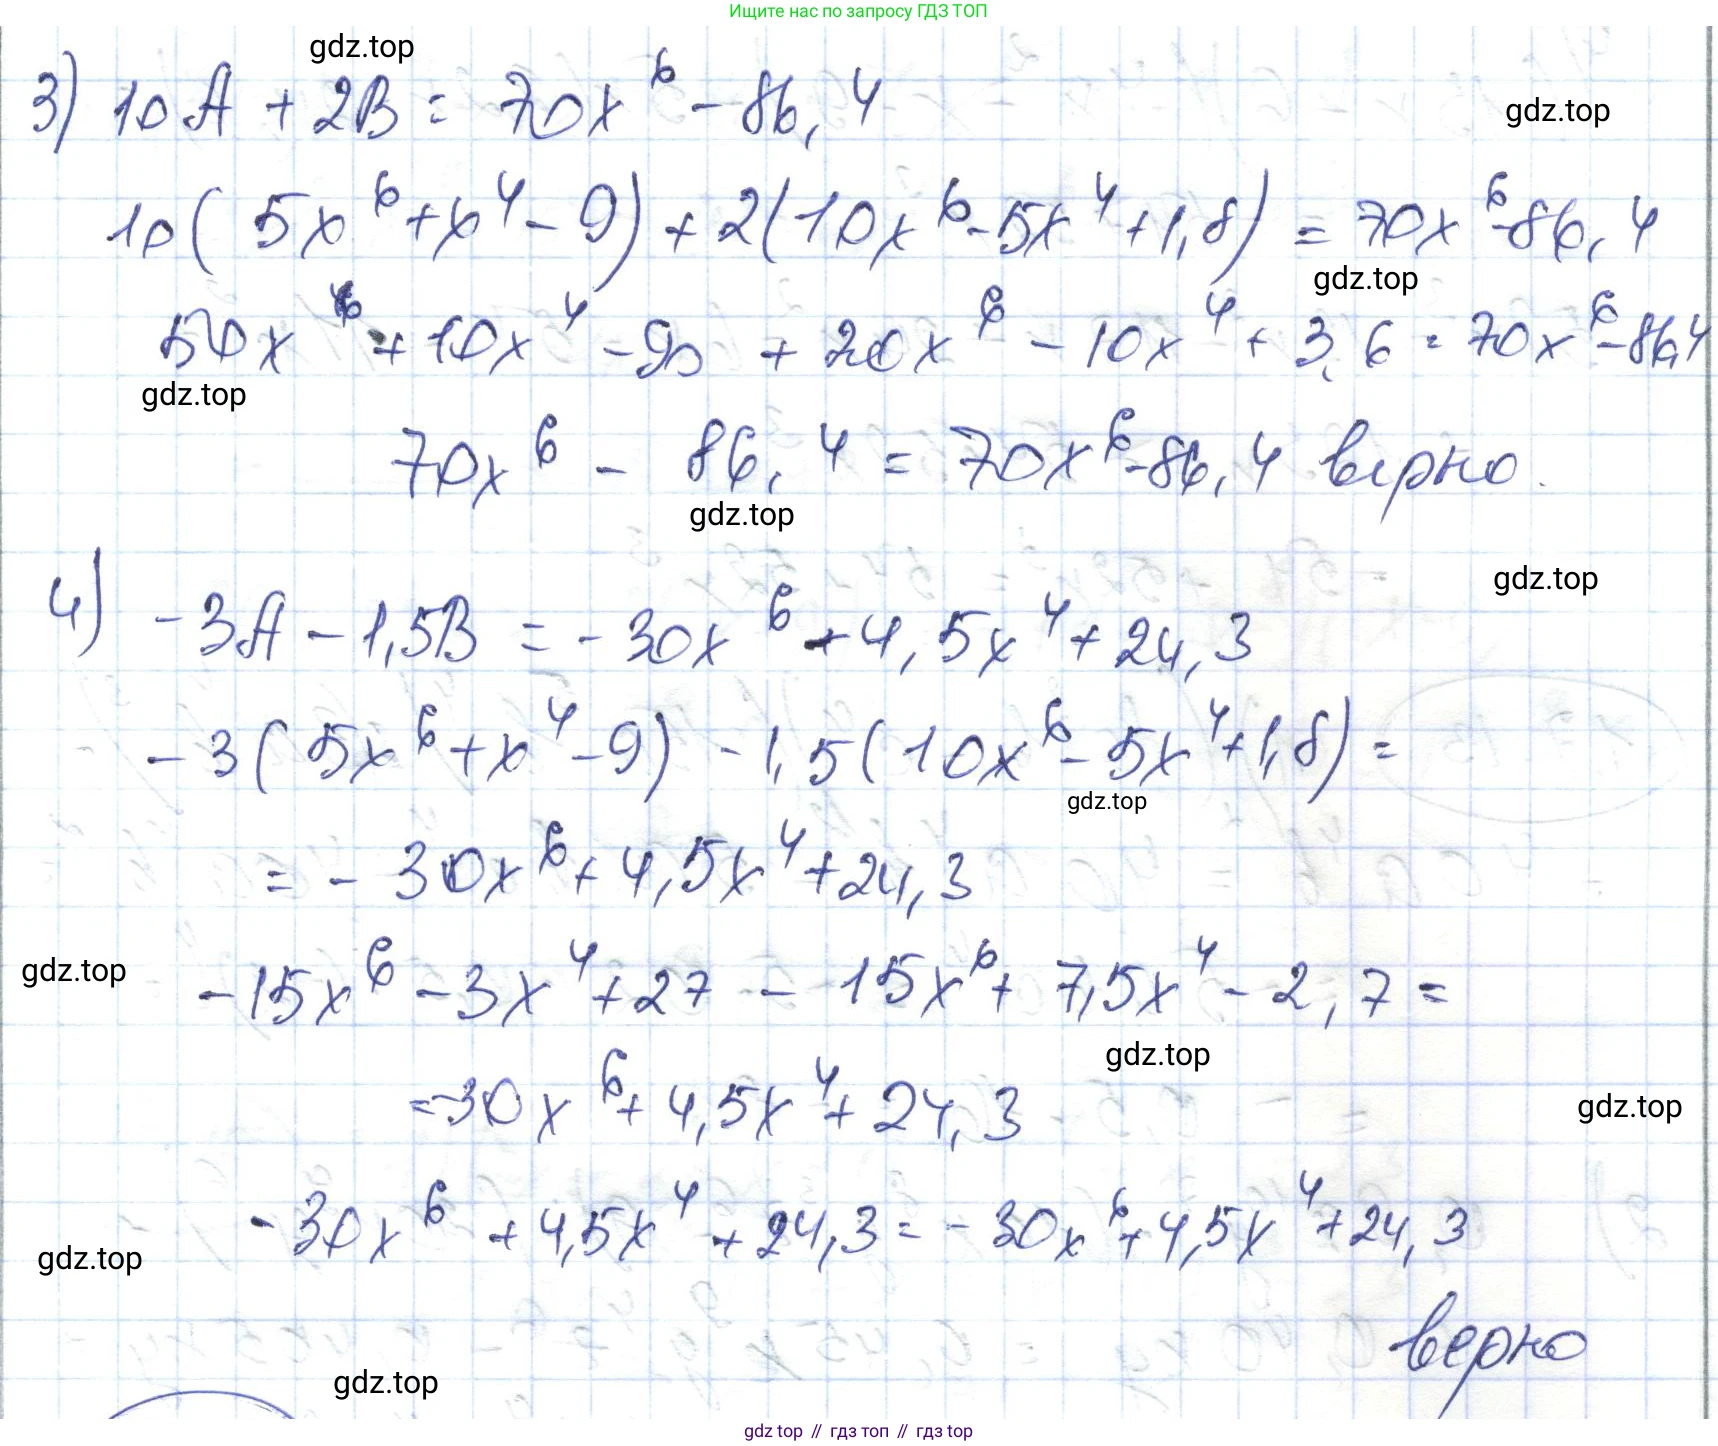 Ищите нас по запросу ГДЗ ТОП
gdz.top
3) 10A + 2B = 70x⁶ - 86,4
gdz.top
10(5x⁶ + x⁴ - 9) + 2(10x⁶ - 5x⁴ + 1,8) = 70x⁶ - 86,4
gdz.top
50x⁶ + 10x⁴ - 90 + 20x⁶ - 10x⁴ + 3,6 = 70x⁶ - 86,4
gdz.top
70x⁶ - 86,4 = 70x⁶ - 86,4 верно.
gdz.top
gdz.top
4) -3A - 1,5B = -30x⁶ + 4,5x⁴ + 24,3
-3(5x⁶ + x⁴ - 9) - 1,5(10x⁶ - 5x⁴ + 1,8) =
gdz.top
= -30x⁶ + 4,5x⁴ + 24,3
gdz.top
-15x⁶ - 3x⁴ + 27 - 15x⁶ + 7,5x⁴ - 2,7 =
gdz.top
= -30x⁶ + 4,5x⁴ + 24,3
gdz.top
-30x⁶ + 4,5x⁴ + 24,3 = -30x⁶ + 4,5x⁴ + 24,3
gdz.top
верно
gdz.top
gdz top // гдз топ // гдз top